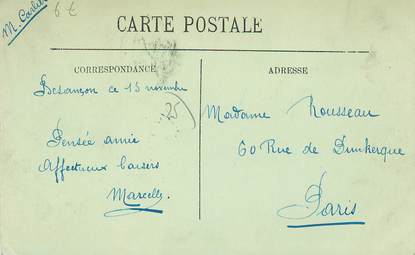 6€
CARTE POSTALE
CORRESPONDANCE
Besançon ce 15 novembre
25
Pensée amie
Affectueux baisers
Marcelle.
ADRESSE
Madame Rousseau
60 Rue de Dunkerque
Paris